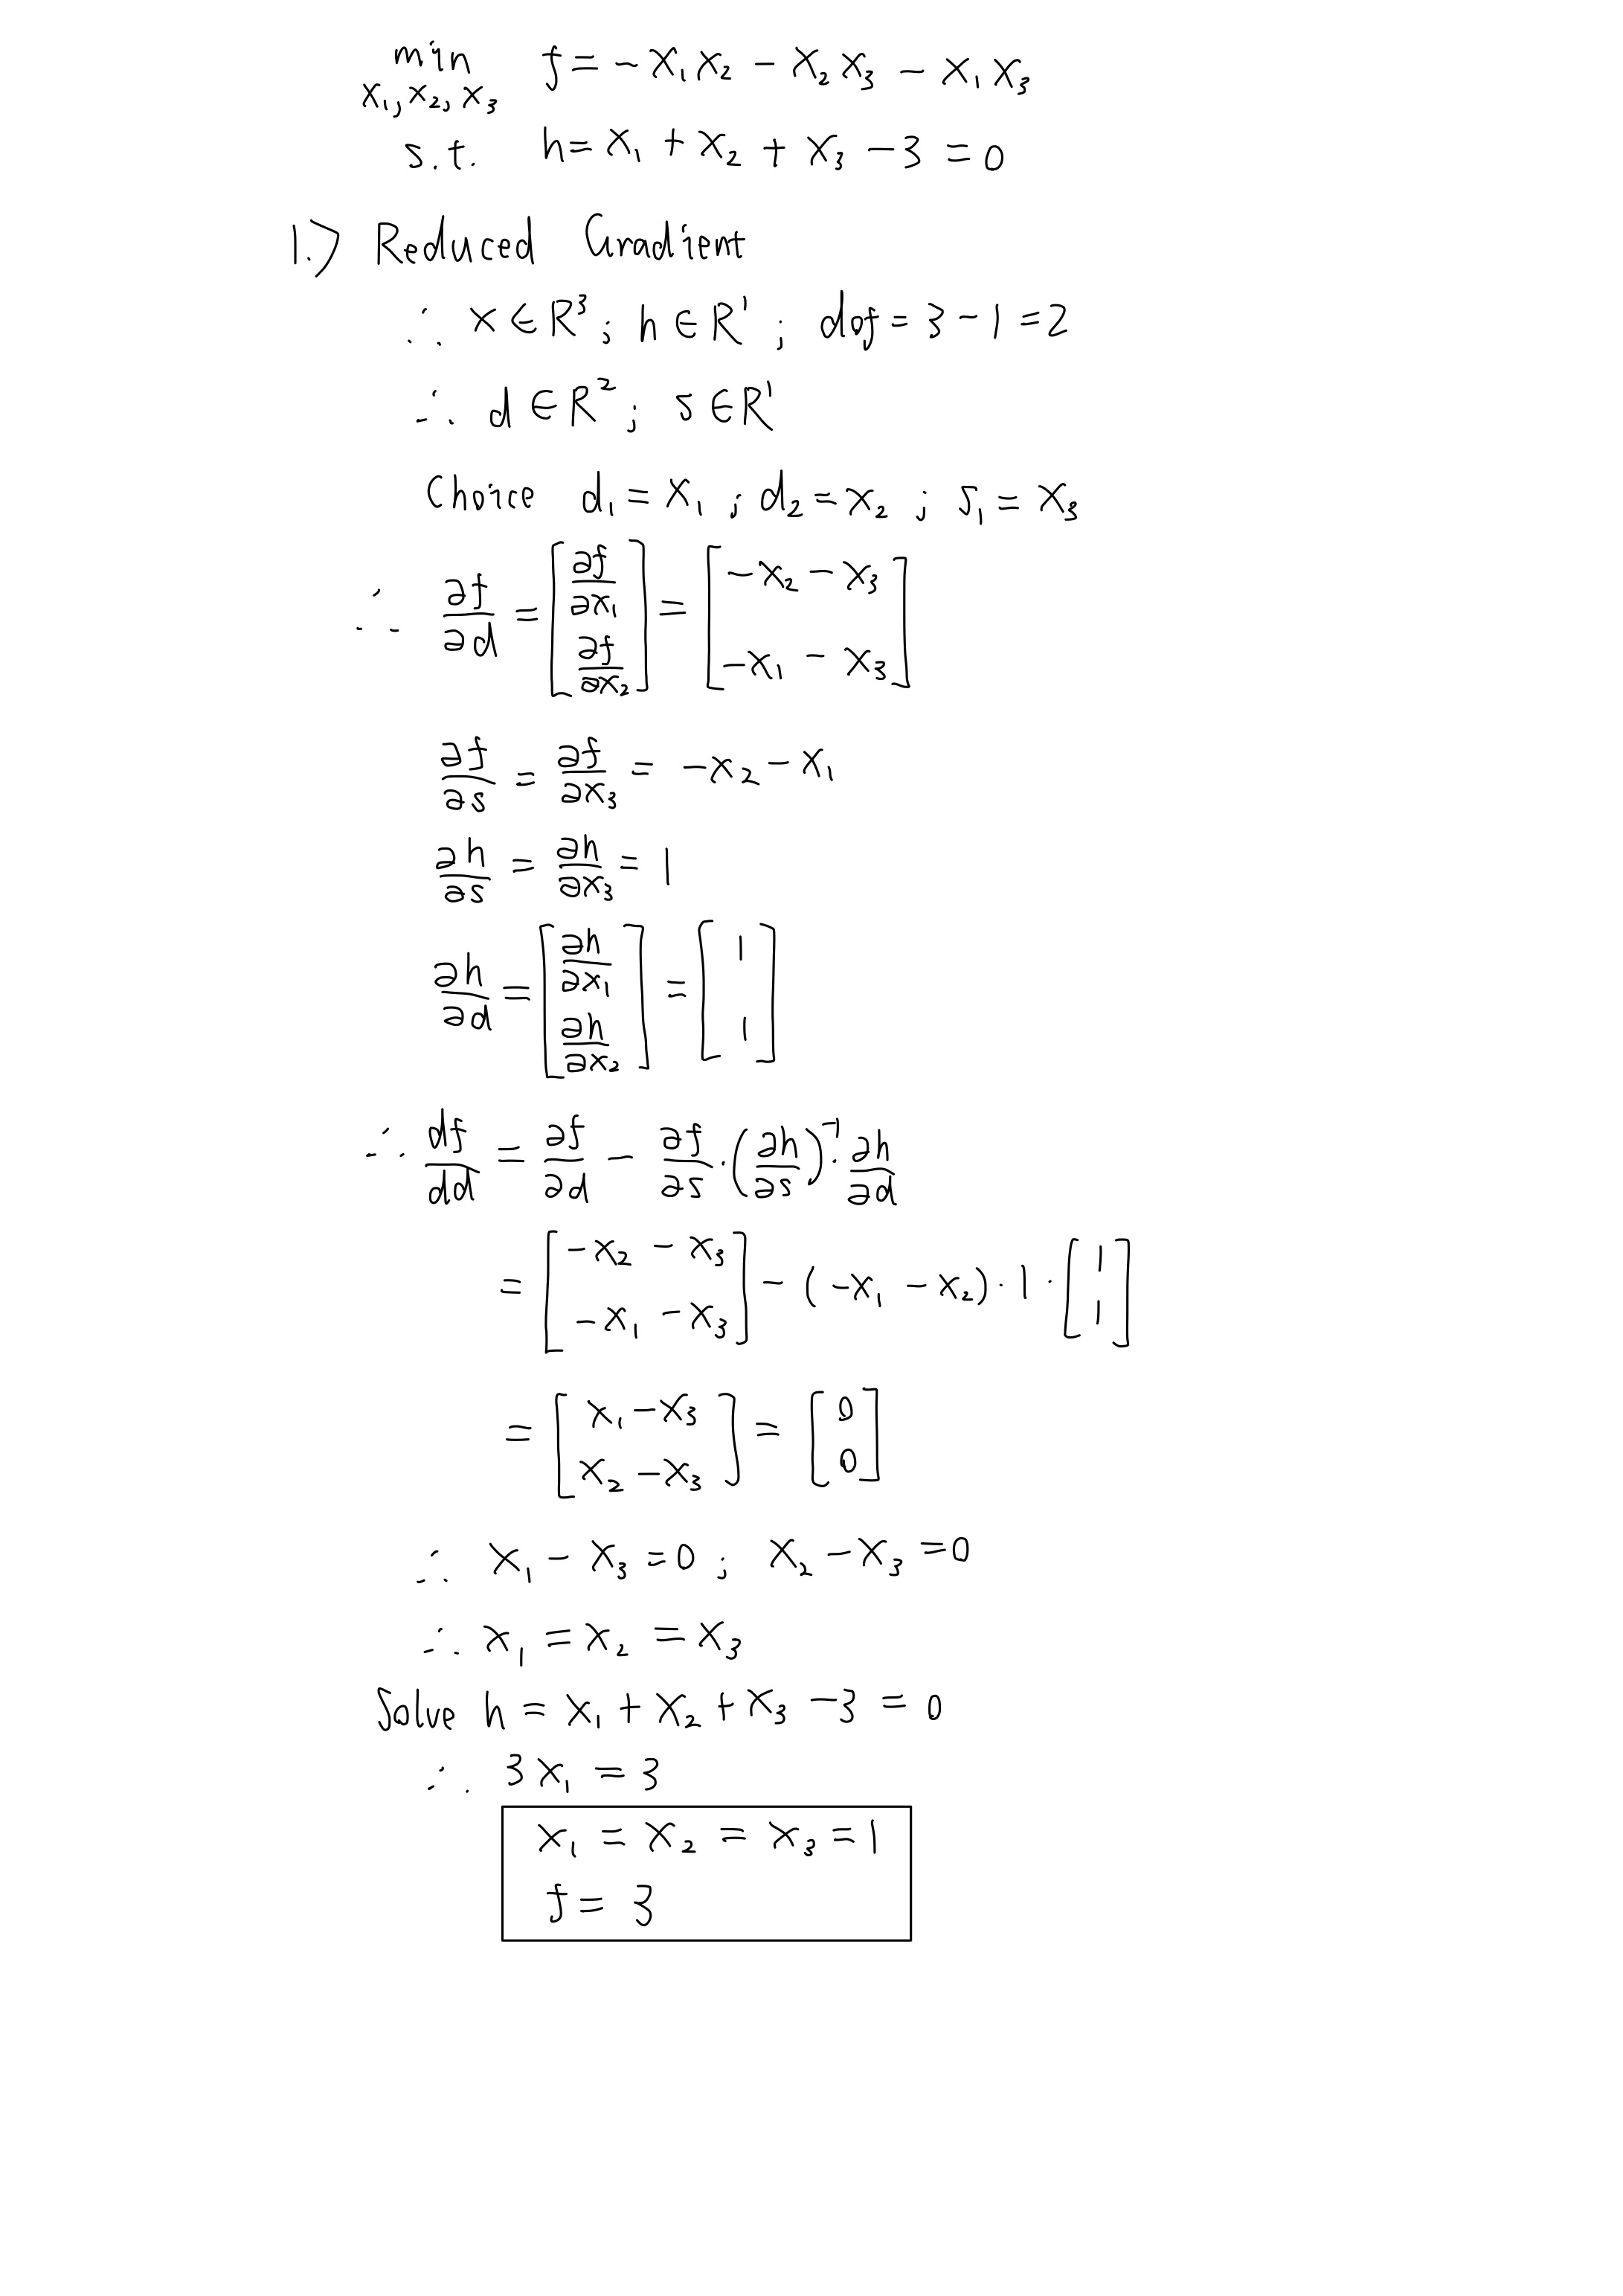 min f = -x₁x₂ - x₂x₃ - x₁x₃
x₁, x₂, x₃
s.t. h = x₁ + x₂ + x₃ - 3 = 0
1.) Reduced Gradient
∵ x ∈ R³; h ∈ R¹; dof = 3 - 1 = 2
∴ d ∈ R²; s ∈ R¹
Choice d₁ = x₁; d₂ = x₂; s₁ = x₃
∴ ∂f/∂d = [∂f/∂x₁; ∂f/∂x₂] = [-x₂ - x₃; -x₁ - x₃]
∂f/∂s = ∂f/∂x₃ = -x₂ - x₁
∂h/∂s = ∂h/∂x₃ = 1
∂h/∂d = [∂h/∂x₁; ∂h/∂x₂] = [1; 1]
∴ df/dd = ∂f/∂d - ∂f/∂s · (∂h/∂s)⁻¹ · ∂h/∂d
= [-x₂ - x₃; -x₁ - x₃] - (-x₁ - x₂) · 1 · [1; 1]
= [x₁ - x₃; x₂ - x₃] = [0; 0]
∴ x₁ - x₃ = 0; x₂ - x₃ = 0
∴ x₁ = x₂ = x₃
Solve h = x₁ + x₂ + x₃ - 3 = 0
∴ 3x₁ = 3
x₁ = x₂ = x₃ = 1
f = 3